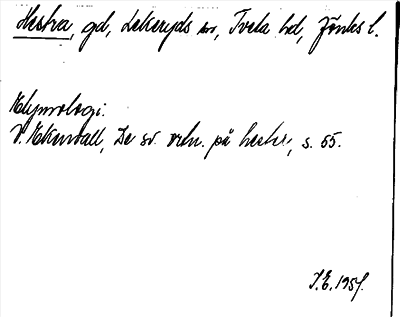 Hestra, gd, Lekeryds sn, Tveta hd, Jönks l.
Etymologi.
V. Ekenvall, De sv. ortn. på hestr, s. 55.
I.E. 1957.